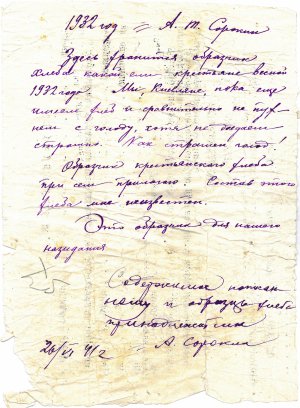 1932 год = А. М. Сорокин
Здесь хранится образчик
хлеба какой ели крестьяне весной
1932 года. Мы, Киевляне, пока еще
имеем хлеб и сравнительно не пух-
нем с голоду, хотя не
страшно. Как страшен голод!
Образчик крестьянского хлеба
при сем прилагаю. Состав этого
хлеба мне неизвестен.
Это образчик для нашего
назидания
Содержимое
и образца хлеба
принадлежит
26/VI 41 г А Сорокин